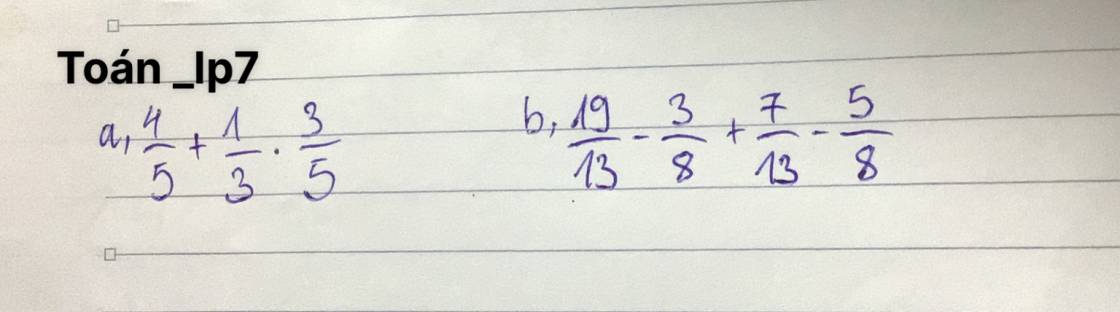 Toán _lp7
a, 4/5 + 1/3 . 3/5
b, 19/13 - 3/8 + 7/13 - 5/8